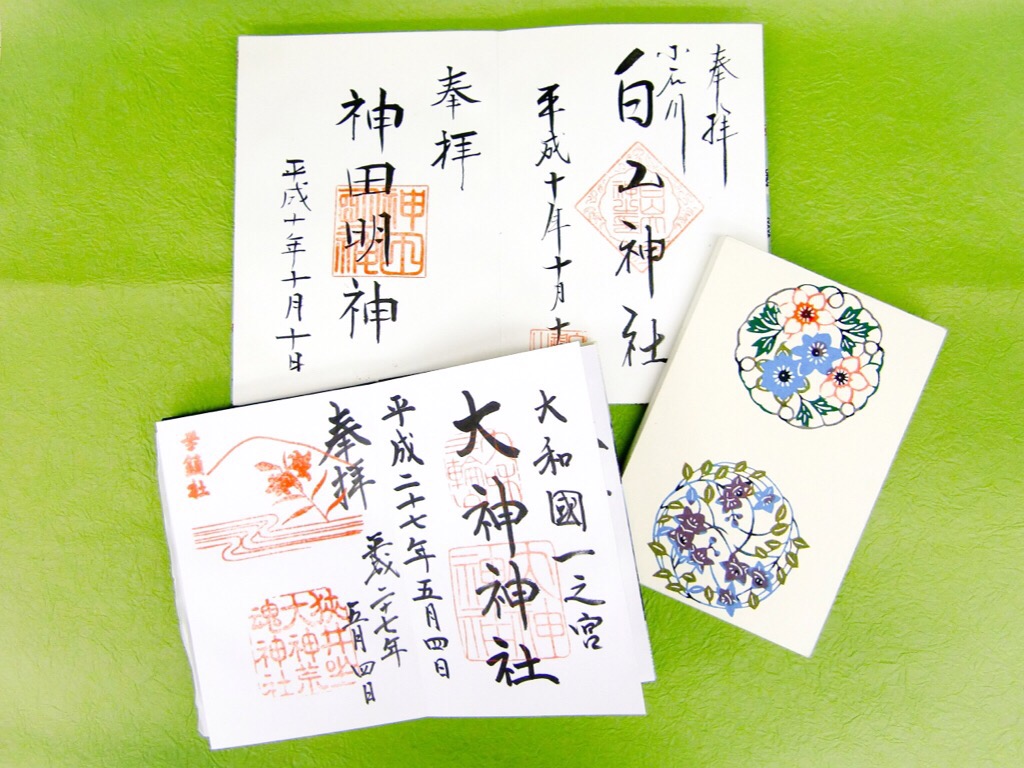 奉拝
小石川
白山神社
平成十年十月十
奉拝
神田明神
平成十年十月十日
大和國一之宮
大神神社
平成二十七年五月四日
奉拝
平成二十七年
五月四日
狭井坐
大神荒
魂神社